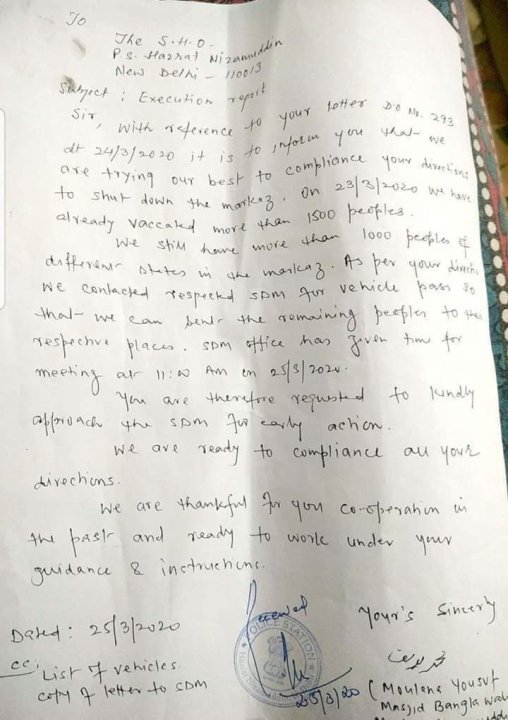 To
The S.H.O.
P.S. Hazrat Nizamuddin
New Delhi - 110013
Subject : Execution report
Sir, With reference to your letter DO No. 293
dt 24/3/2020 it is to inform you that we
are trying our best to compliance your directions
to shut down the markaz. On 23/3/2020 we have
already vaccated more than 1500 peoples.
We still have more than 1000 peoples of
different states in the markaz. As per your directi
we contacted respected SDM for vehicle pass so
that we can sent the remaining peoples to their
respective places. SDM office has given time for
meeting at 11:00 AM on 25/3/2020.
You are therefore requested to kindly
approach the SDM for early action.
We are ready to compliance all your
directions.
We are thankful for you co-operation in
the past and ready to work under your
guidance & instructions.
Received
Your's Sincerly
Dated : 25/3/2020
POLICE STATION
محمد یوسف
cc: List of vehicles.
copy of letter to SDM
25/3/20
(Moulana Yousuf
Masjid Bangla wali